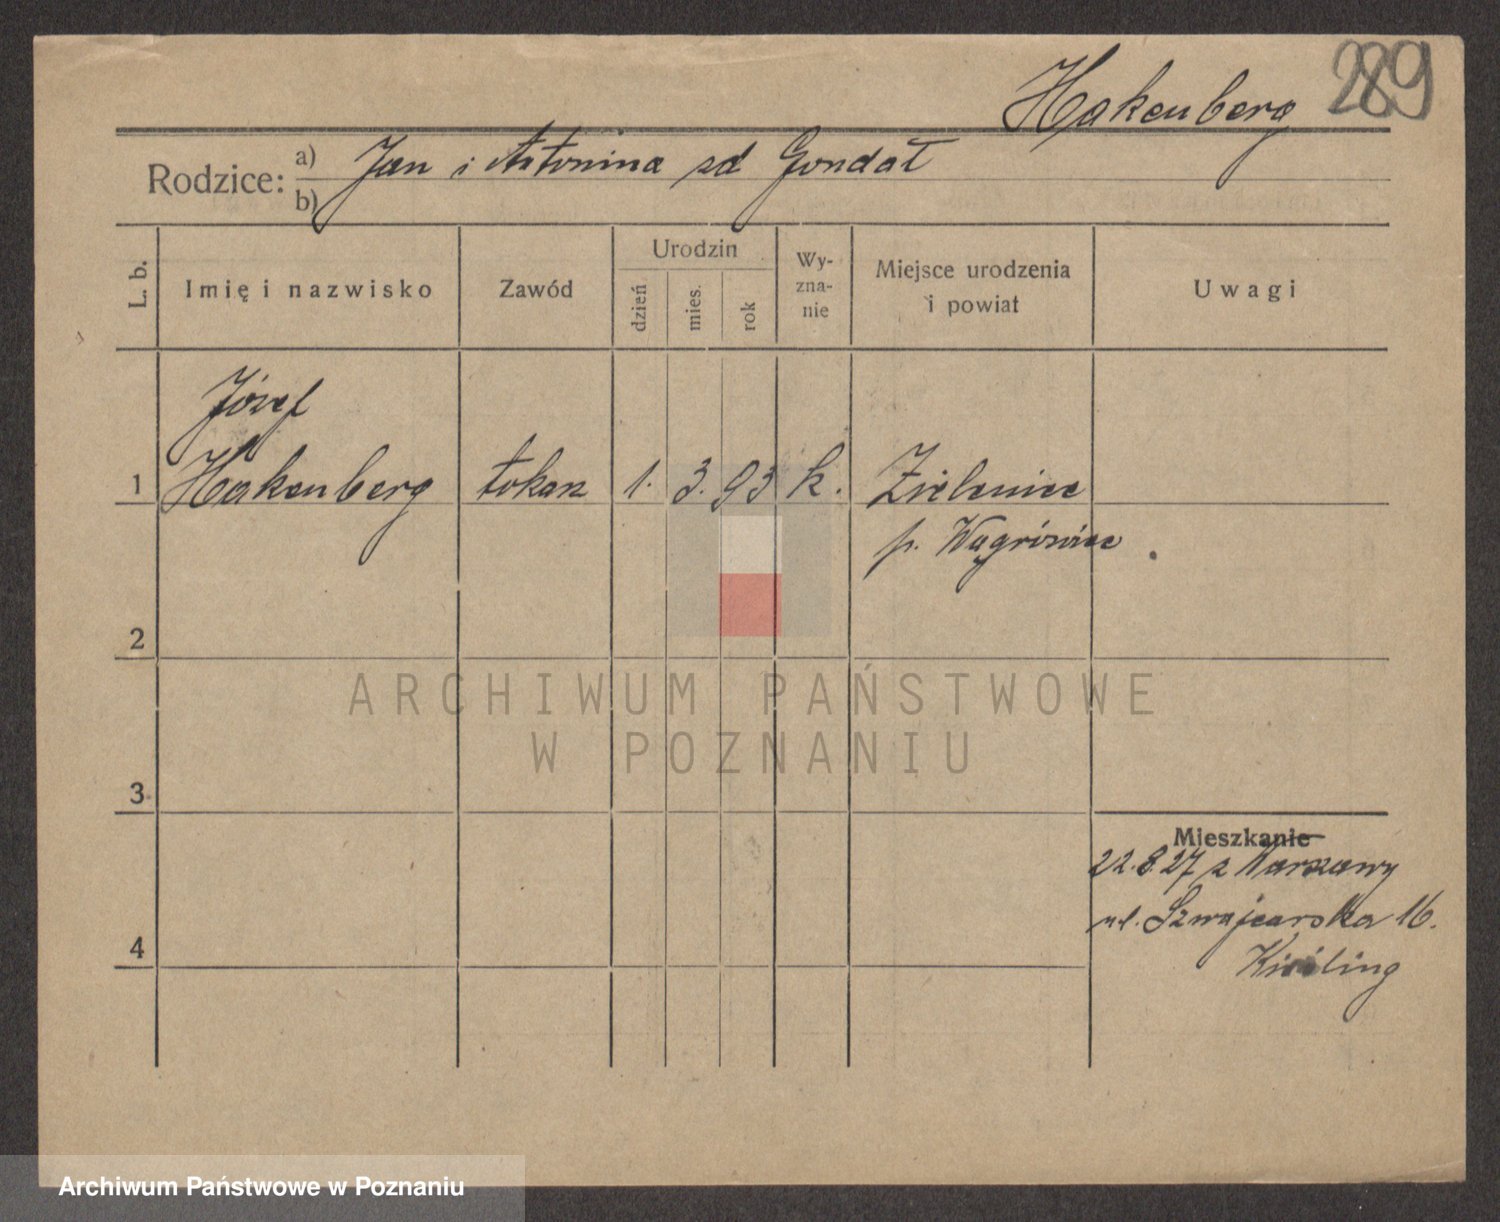 Hakenberg 289
Rodzice: a) Jan i Antonina zd Gondał
b)
L. b.
Imię i nazwisko
Zawód
Urodzin
dzień
mies.
rok
Wy-
zna-
nie
Miejsce urodzenia
i powiat
Uwagi
Józef
1 Hakenberg tokarz 1. 3. 93 k. Zieleniec
p. Wągrówiec
2
ARCHIWUM PAŃSTWOWE
W POZNANIU
3
Mieszkanie
22.8.27 z Warszawy
4 ul. Szwajcarska 16.
Archiwum Państwowe w Poznaniu